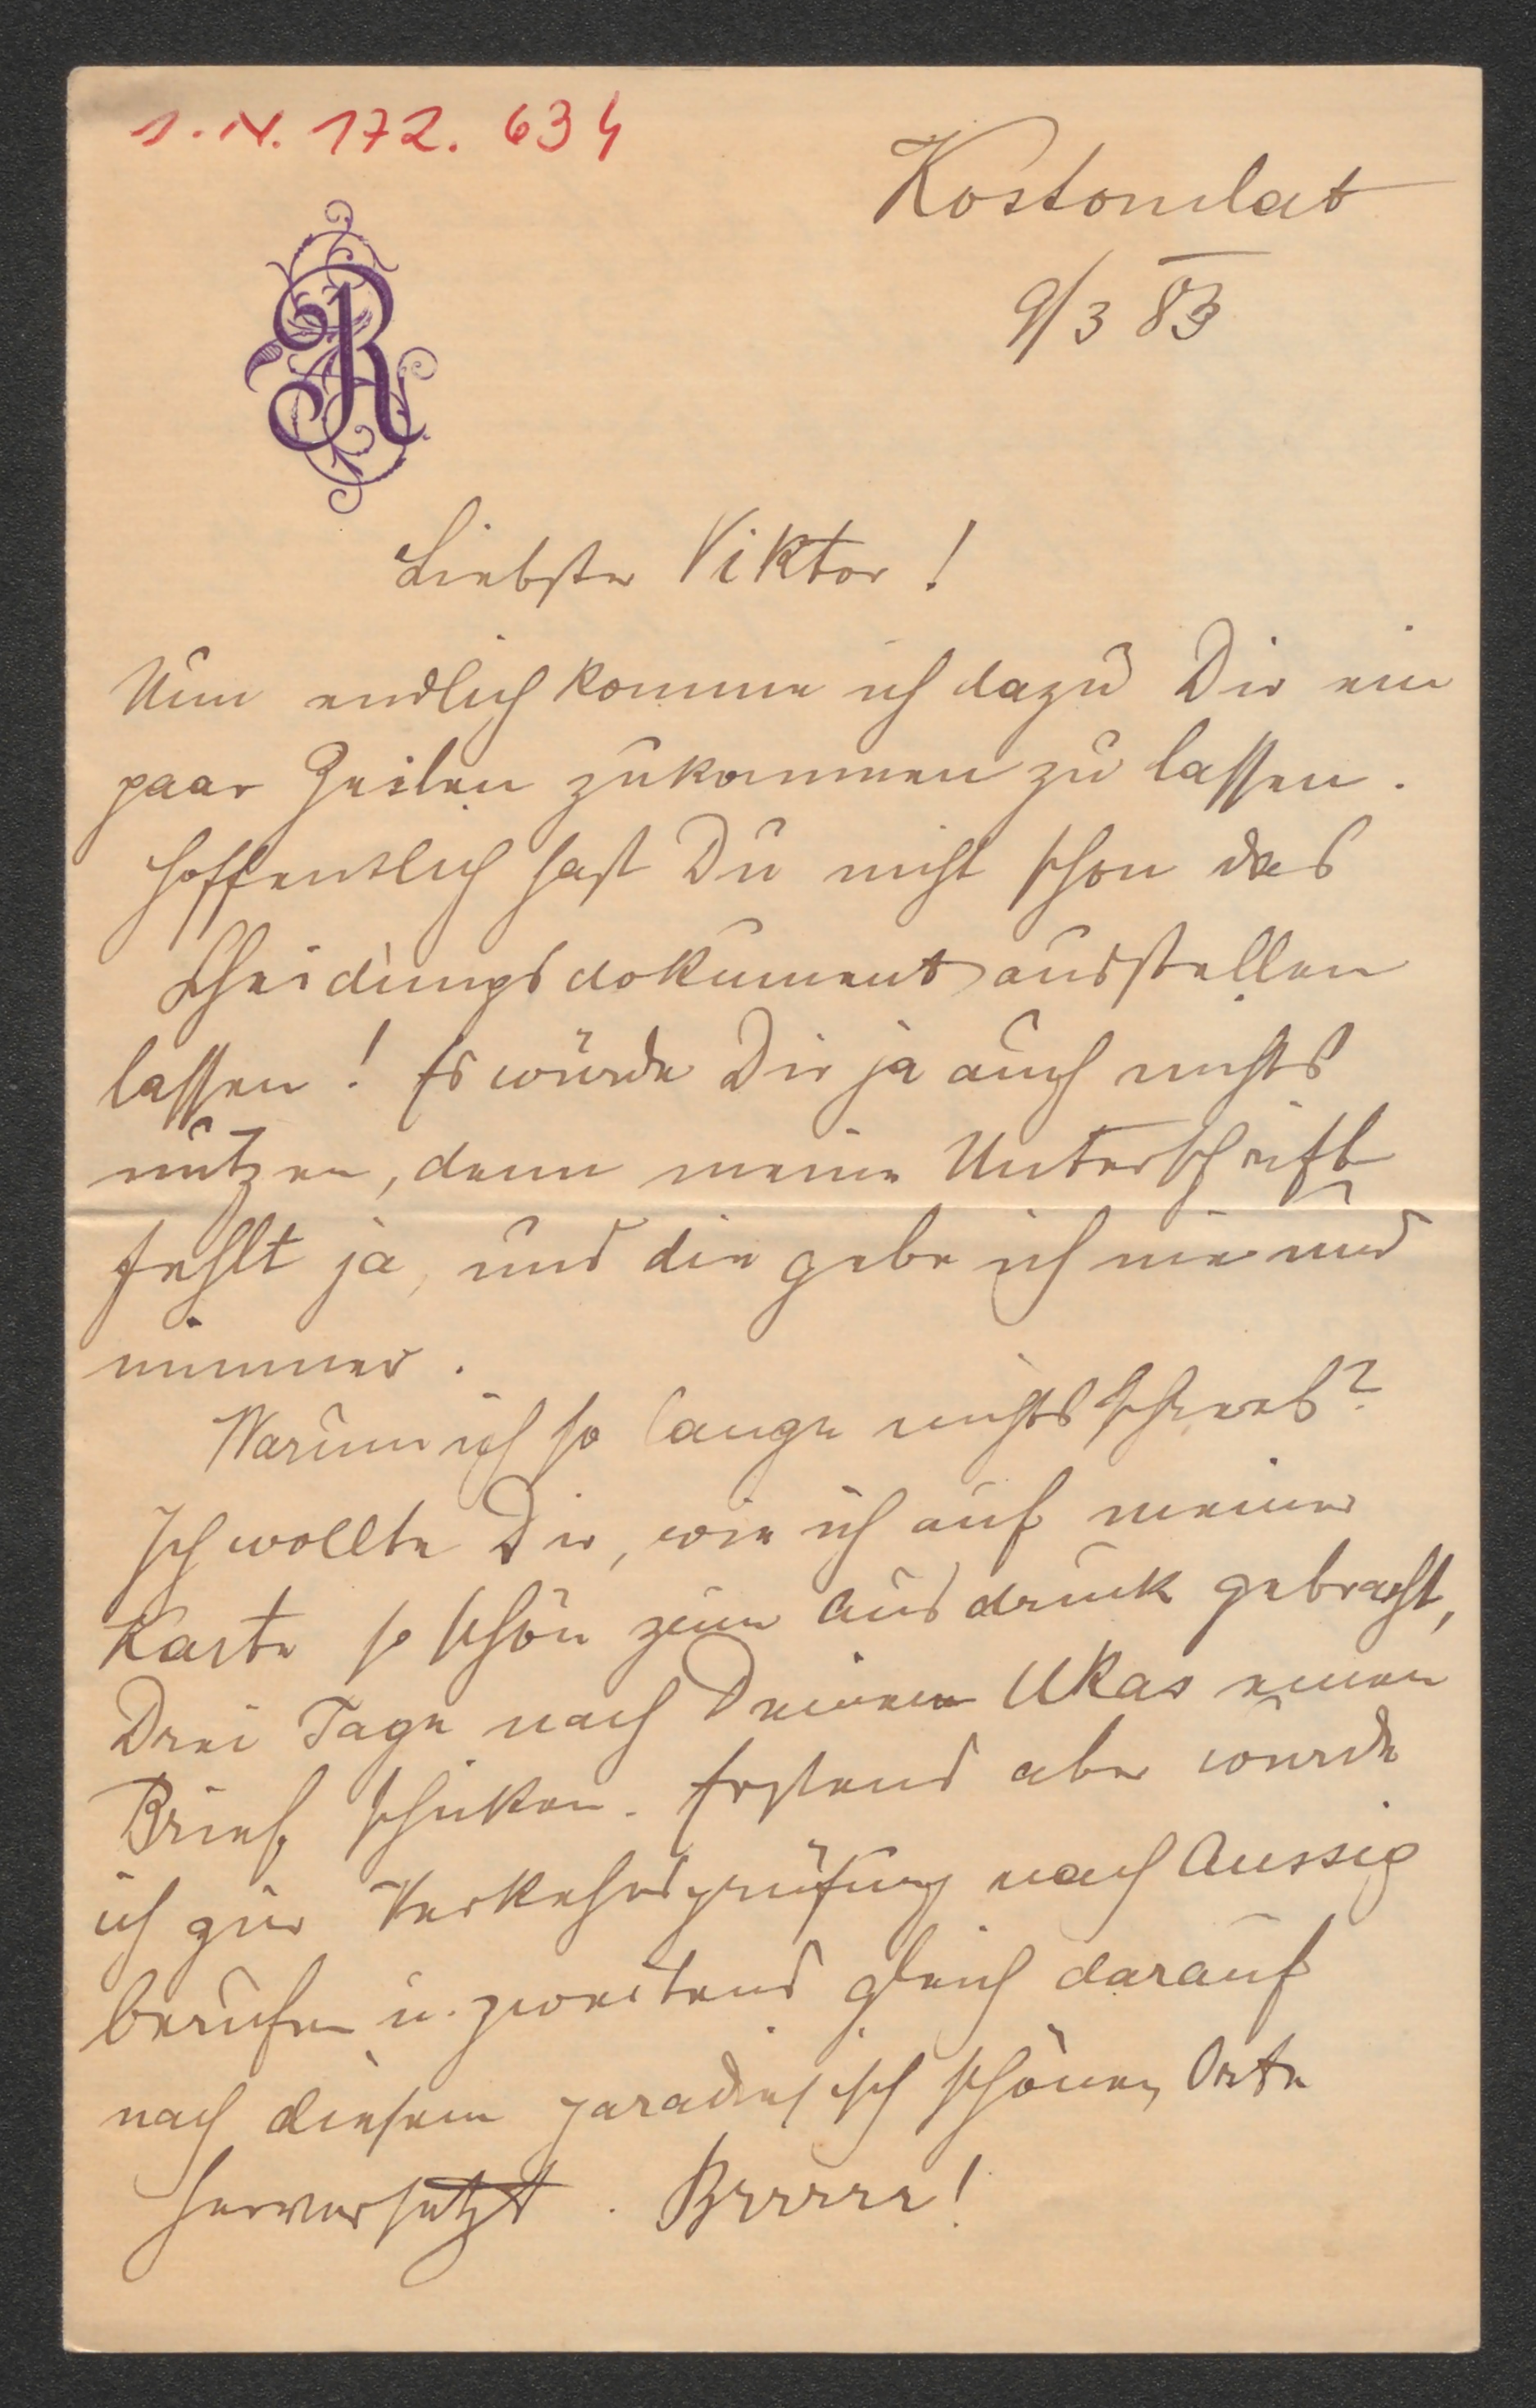 I.N. 172.634
Kostomlat
9/3 83
R
Liebster Viktor!
Nun endlich komme ich dazu Dir ein
paar Zeilen zukommen zu lassen.
Hoffentlich hast Du nicht schon das
Scheidungsdokument ausstellen
lassen! Es würde Dir ja auch nichts
nützen, denn meine Unterschrift
fehlt ja, und die gebe ich nie und
nimmer.
Warum ich so lange nichts schrieb?
Ich wollte Dir, wie ich auf meiner
Karte so schön zum Ausdruck gebracht,
Drei Tage nach Deinem Ukas einen
Brief schicken. Erstens aber wurde
ich zur Verkehrsprüfung nach Aussig
berufen u. zweitens gleich darauf
nach diesem paradiesisch schönen Orte
herversetzt. Brrrrrr!